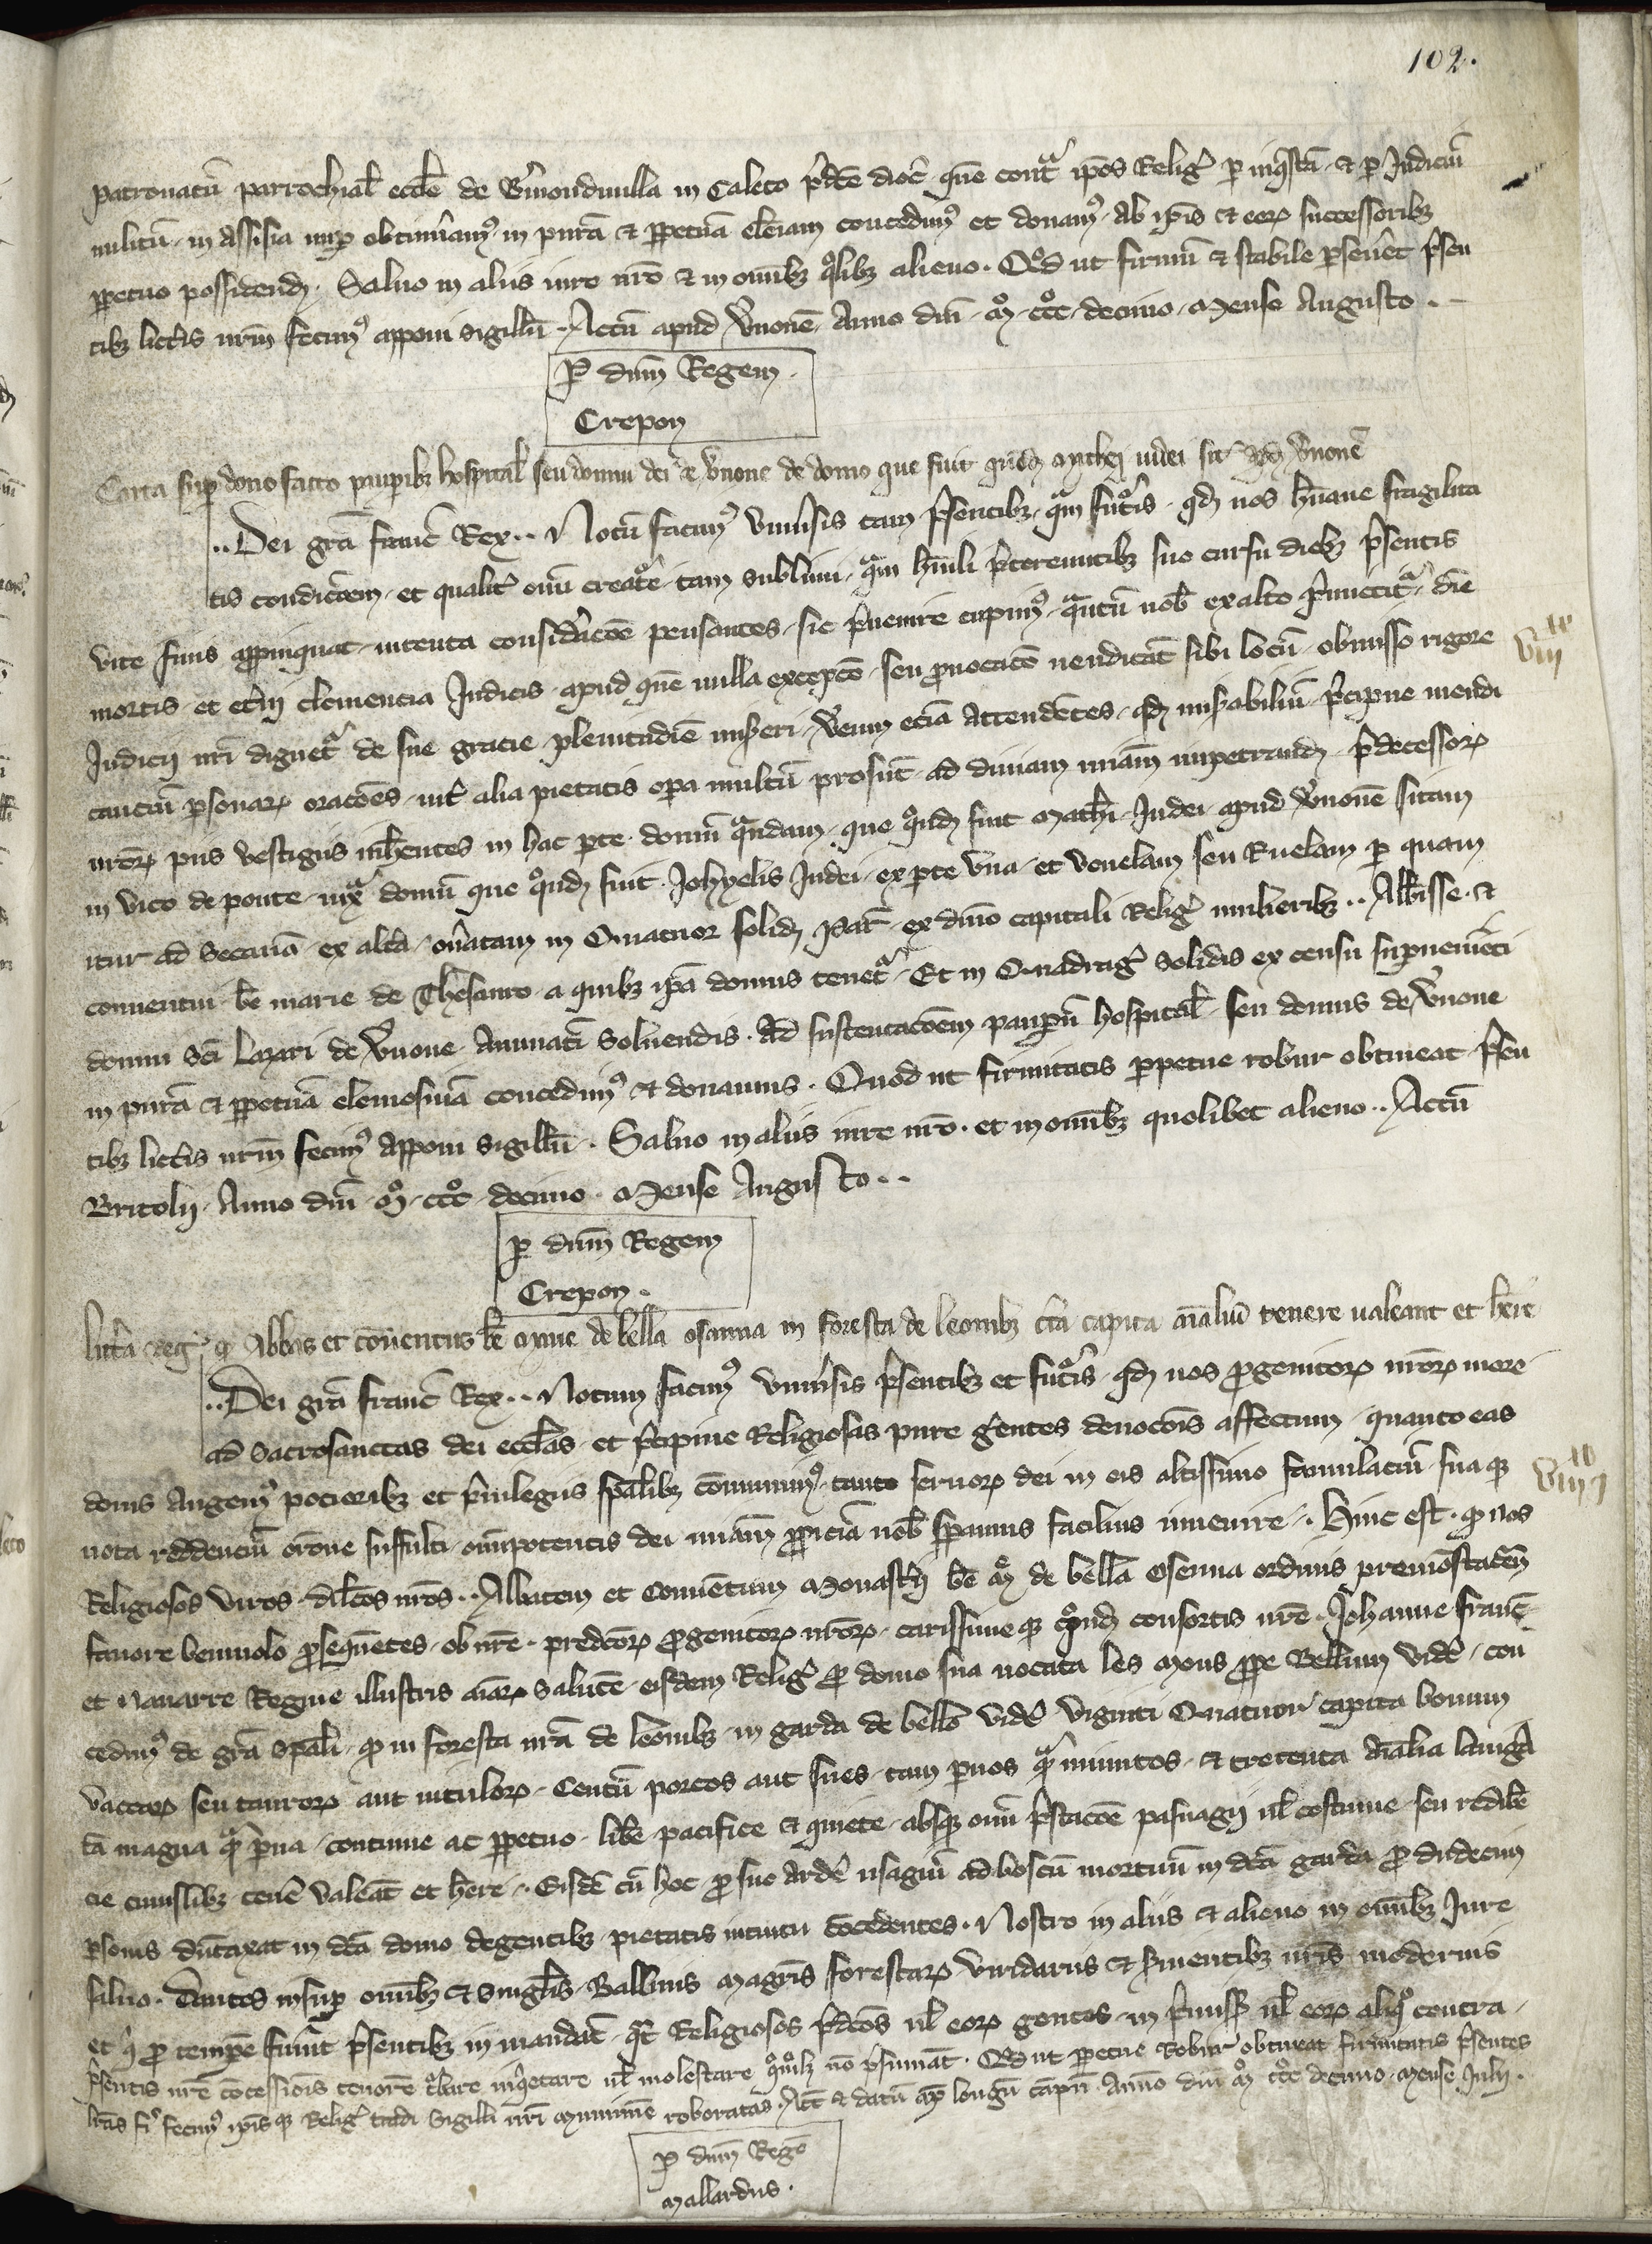 102.
patronatū parrochial' eccl'ie de 
militū in assisia nup obtinuam9 in purā & ppetuā elem concedim9 et donam9 ab ip̄is & eorꝫ successoribꝫ
ppetuo possidend. Saluo in aliis iure nr̄o & in omībꝫ qolibꝫ alieno. Qd ut firmū & stabile pseueret psen
tibꝫ litt'is nrm̄ fecim9 apponi sigillū. Actū apud v'nonē Anno dn̄i mo ccco decimo mense Augusto.
P dnm̄ Regem.
Crepon
Carta sup dono facto paupibꝫ hospital' seu domui dei de v'none de domo que fuit qnd iudei sit apd v'nonē
..Dei grā franc' Rex.. Notū facim9 vniu'sis tam p'sentibꝫ qam fut'is qd nos hūane fragilita
tis condic̄oem et qualit' om̄i creat'e tam sublimi qam hūili p'tereuntibꝫ suo cursu diebꝫ p'sentis
vite finis appinquat intenta considac̄oe pensantes sic p'uenire cupim9 qantū nob' ex alto p'mittit' diē
mortis et et'ni clemencia Iudicis apud quē nulla excepc̄o seu puocac̄o uendicat sibi locū obmisso rigore
Iudicij nr̄i dignet' de sue gracie plenitudīe mis'eri v'um eciā attendētes qd mis'abiliū p'cipue mendi
cantiū p'sonarꝫ orac̄oes int' alia pietatis op'a multū prosūt ad diuinam miāam impetrand p'decessorꝫ
nr̄orꝫ piis vestigiis inh'entes in hac p'te domū qandam que qond fuit Math'i Iudei apud v'nonē sitam
in vico de ponte iuxa domū que qond fuit Iohyelis Iudei ex pte vna et venelam seu Ruelam p quam
itur ad secanā ex alt'a on'atam in Quatuor solid par' ex dn̄io capitali Relig' mulieribꝫ .. Abb'isse &
conuentui be' marie de Thesauro a quibꝫ ip̄a domus tenet' Et in Quadrag' solidis ex censu supuenienti
domui sc̄i Lazari de v'none Annuati soluendis. Ad sustentac̄oem paupū hospital' seu domus de v'none
in purā & ppetuā elemosinā concedim9 & donamus. Quod ut firmitatis ppetue robur obtineat p'sen
tibꝫ litt'is nrm̄ fecim9 apponi sigillū. Saluo in aliis iure nr̄o et in omībꝫ quolibet alieno.. Actū
Britolij Anno dn̄i mo ccco decimo mense Augusto..
p dnm̄ Regem
Crepon.
litt'a reg' q Abbas et conuentus be' marie de bella osanna in foresta de leonibꝫ c'ta capita aīaliū tenere ualeant et h'ere
..Dei grā franc' Rex.. Notum facim9 vniu'sis p'sentibꝫ et fut'is qd nos progenitorꝫ nr̄orꝫ more
ad sacrosanctas dei eccl'ias et p'cipue Religiosas pure g'entes deuoc̄ois affectum quanto eas
donis augem9 pocioribꝫ et p'uilegiis sp'alibꝫ com̄unim9 tanto seruorꝫ dei in eis altissimo famulaciū sua qꝫ
uota reddenciū or̄one suffulti omīpotentis dei miāam ppiciā nob' speramus facilius inuenire. Hinc est q nos
Religiosos viros dil'cos nr̄os.. Abbatem et conuentum Monast'ij be' mo de bella Osenna ordinis premonstratēn
fauore beniuolo psequētes ob nr̄e predc̄orꝫ progenitorꝫ nr̄orꝫ carissime qꝫ qond consortis nr̄e Iohanne franc'
et Nauarre Regine illustris aīarꝫ salutē eisdem Relig' p domo sua uocata les mons ppe Bellum vide' con
cedim9 de grā sp'ali q in foresta nr̄a de leonibꝫ in garda de bello vide' viginti Quatuor capita bouum
vaccarꝫ seu taurorꝫ aut vitulorꝫ Centū porcos aut sues tam p'uos qa inuitos & trecenta aīalia lanige
ta magna qa p'ua continue ac ppetuo libe' pacifice & quiete absqꝫ om̄i p'stac̄oe pasnagij ul' costume seu reddib'
cie cuiuslibꝫ tene' valeāt et h'ere. Eisdē cū hoc p suo arde' usagiū ad boscū mortuū in dc̄a garda p duodecim
p'sonis duntaxat in dc̄a domo degentibꝫ pietatis intuitu cōcedentes. Nostro in aliis & alieno in omībꝫ Iure
saluo. Dantes insup omībꝫ & singulis Balliuis magr̄is forestarꝫ viridariis & s'uientibꝫ nr̄is modernis
et q' p tempe fuerint p'sentibꝫ in mandat' qat' Religiosos p'dc̄os ul' eorꝫ gentes in p'miss' ul' eorꝫ aliquo contra
p'sentis nr̄e cōcessiōis tenorē turbare inq'etare ul' molestare quomolꝫ nō p'sumāt. Qd ut ppetue Robur obtineat firmitatis p'sentes
lr̄as fi' fecim9 ip̄is qꝫ Relig' tradi Sigilli nr̄i munimine roboratas. Act' & datū ap' longū campū Anno dn̄i mo ccco decimo mense Iulij.
p dnm̄ Regē
Mallardus.